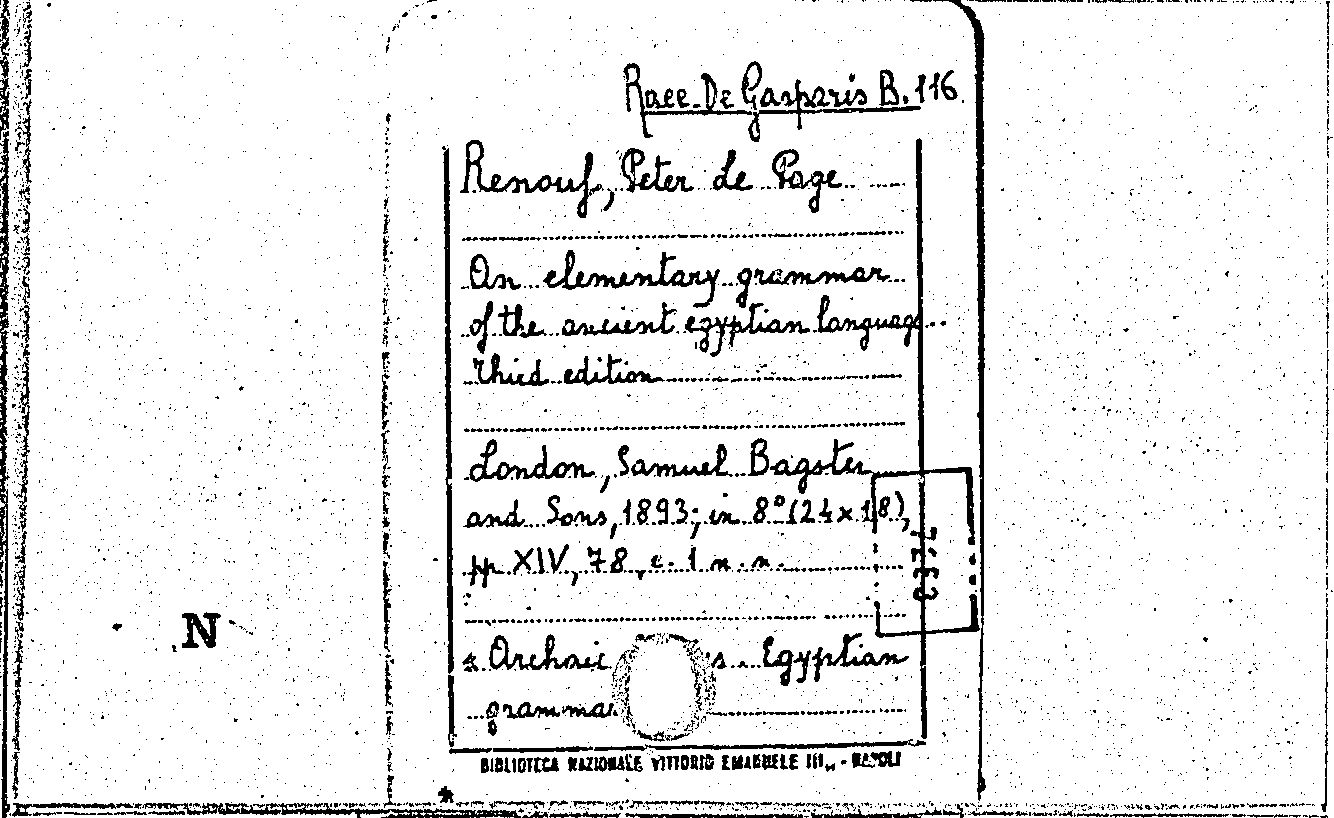 Racc. De Gasparis B. 116
Renouf, Peter Le Page
An elementary grammar
of the ancient egyptian language..
Third edition
London, Samuel Bagster
and Sons, 1893; in 8° (24x18),
pp XIV, 78, c. 1 n. n.
* Archaic
Egyptian
BIBLIOTECA NAZIONALE VITTORIO EMANUELE III - NAPOLI
N